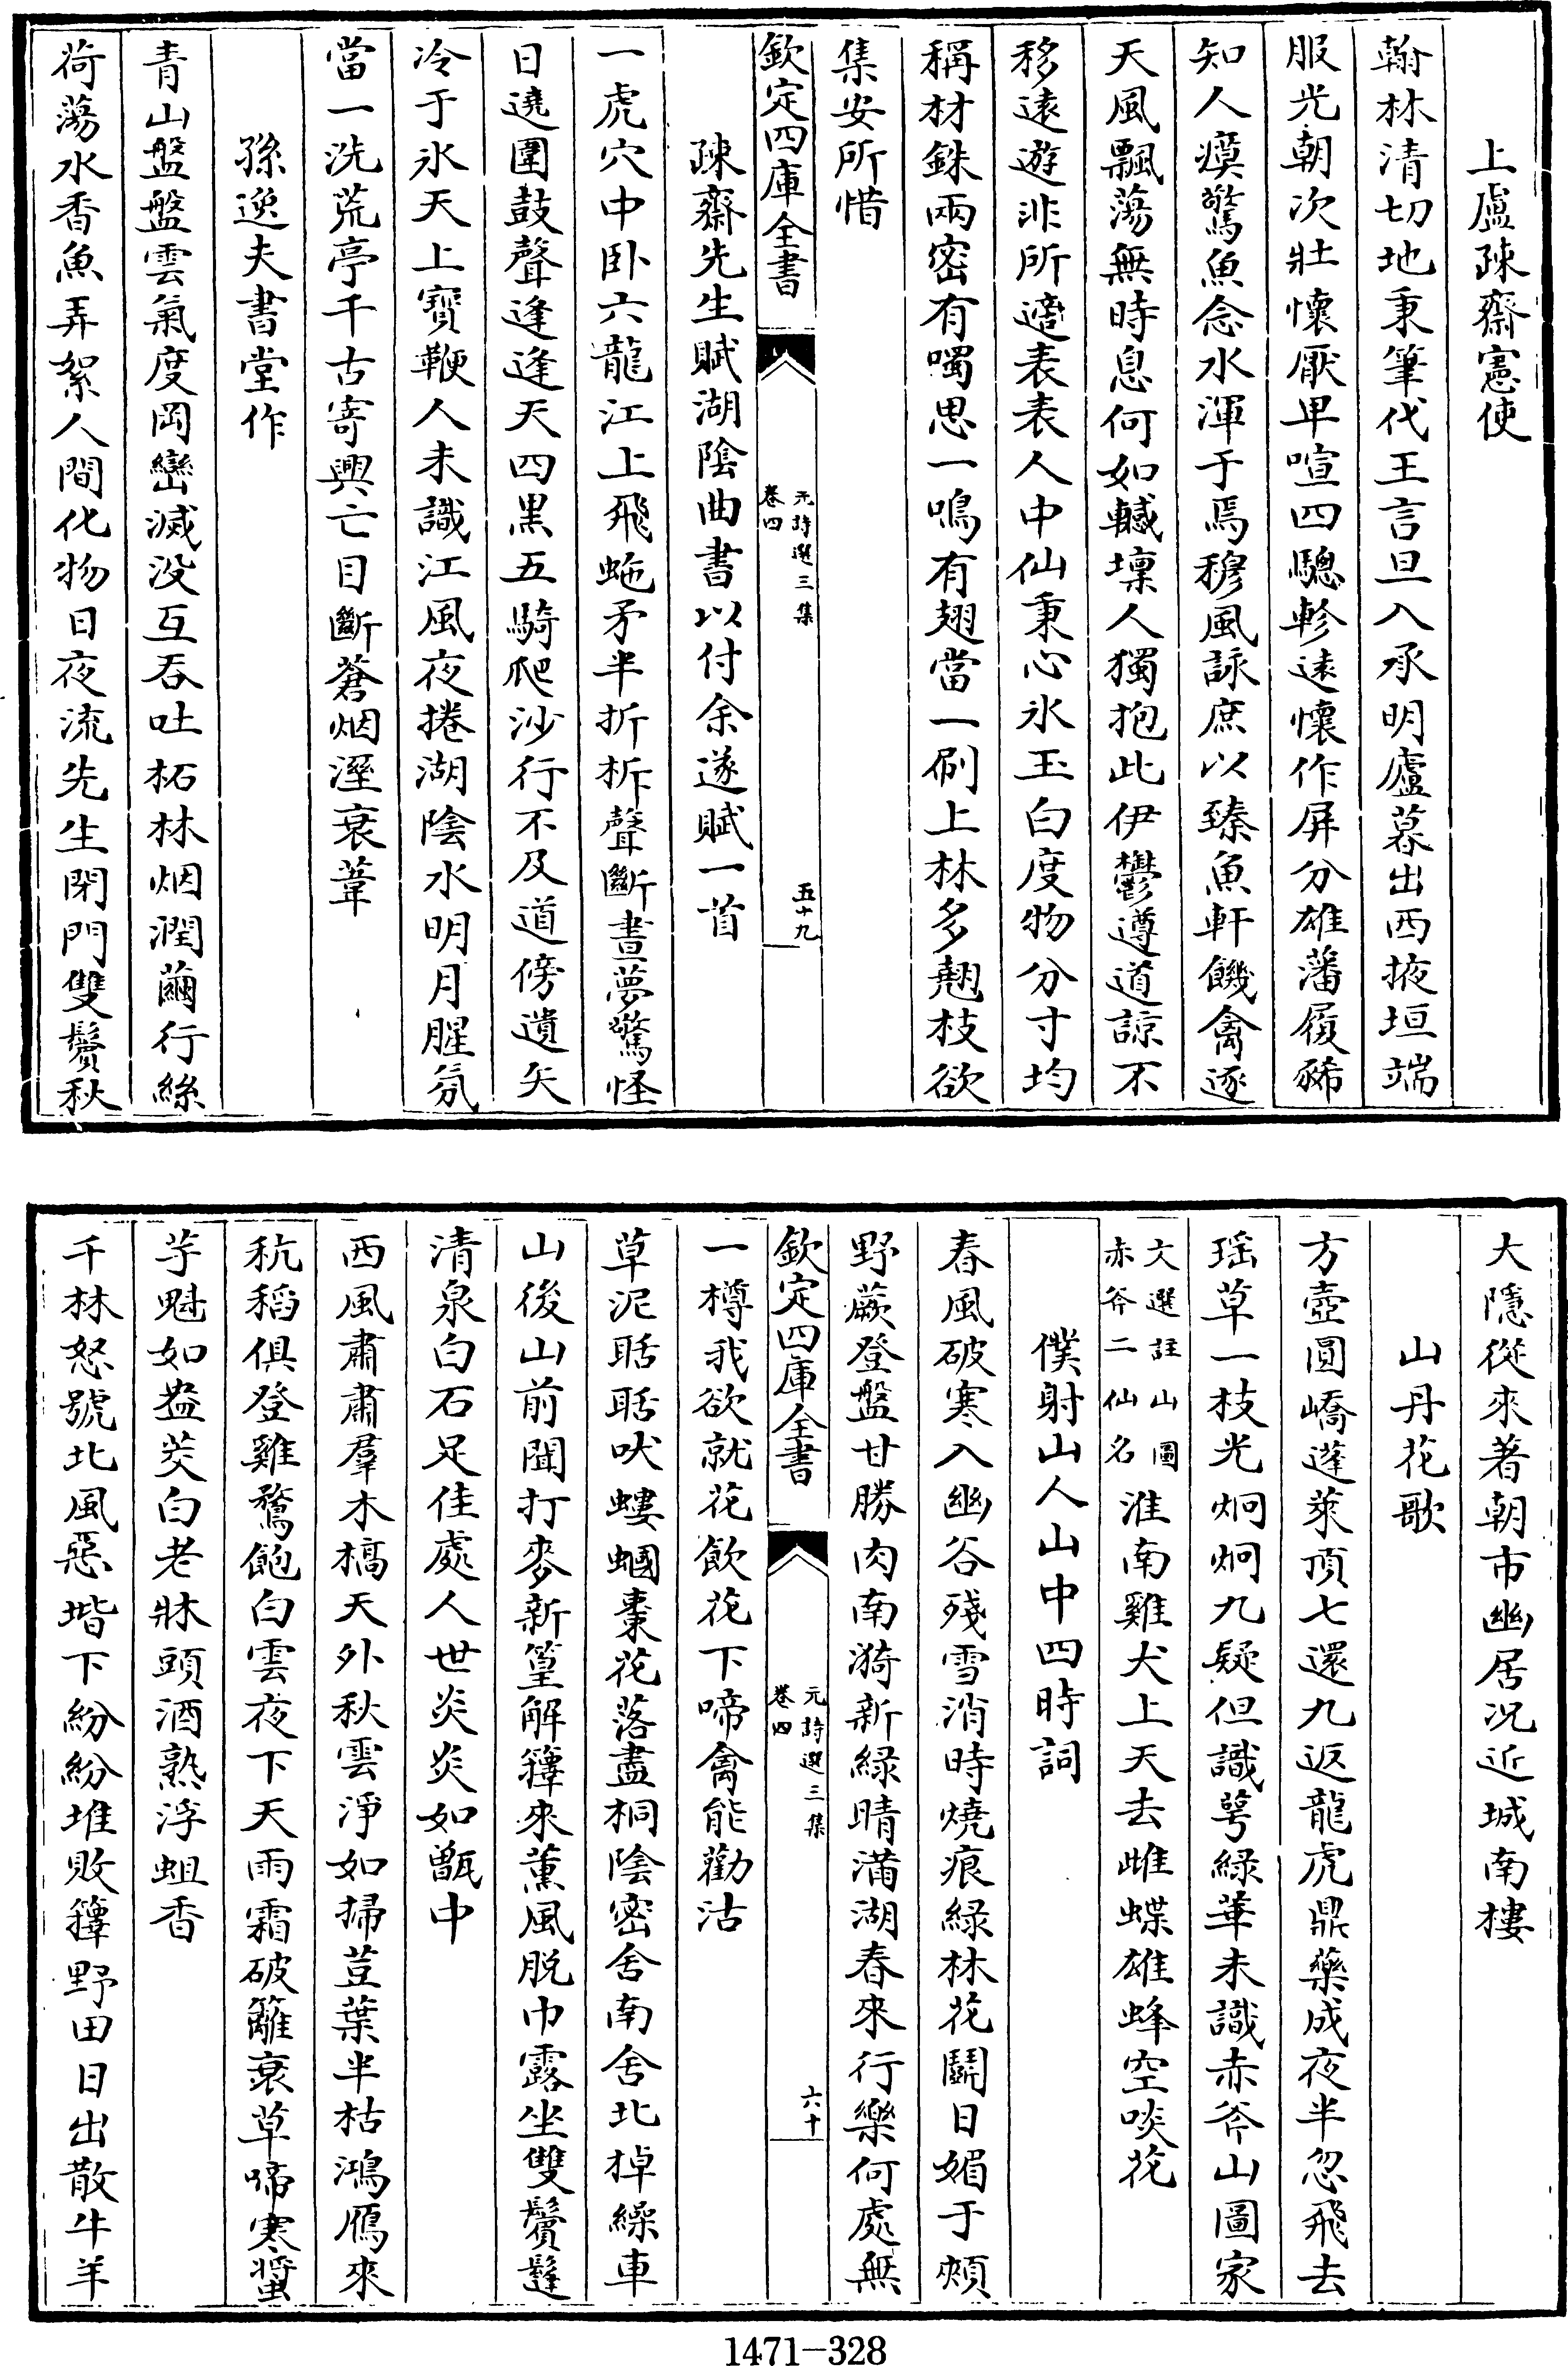 上盧疎齋憲使
翰林清切地秉筆代王言旦入承明廬暮出西掖垣端
服光朝次壯懷厭卑喧四驄軫遠懷作屏分雄藩履豨
知人瘼驚魚念水渾于焉穆風詠庶以臻魚軒饑禽逐
天風飄蕩無時息何如轗壈人獨抱此伊鬱遵道諒不
移遠遊非所適表表人中仙秉心冰玉白度物分寸均
稱材銖兩密有噣思一鳴有翅當一刷上林多翹枝欲
集安所惜
欽定四庫全書
元詩選三集
卷四
五十九
疎齋先生賦湖陰曲書以付余遂賦一首
一虎穴中卧六龍江上飛虵矛半折柝聲斷晝夢驚怪
日遶圍鼓聲逢逢天四黑五騎爬沙行不及道傍遺矢
冷于氷天上寶鞭人未識江風夜捲湖陰水明月腥氛
當一洗荒亭千古寄興亡目斷蒼烟溼衰葦
孫逸夫書堂作
青山盤盤雲氣度岡巒滅没互吞吐柘林烟潤繭行絲
荷蕩水香魚弄絮人間化物日夜流先生閉門雙鬢秋
大隱從來著朝市幽居况近城南樓
山丹花歌
方壺圓嶠蓬萊頂七還九返龍虎鼎藥成夜半忽飛去
瑶草一枝光炯炯九疑但識萼緑華未識赤斧山圖家
文選註山圖
赤斧二仙名
淮南雞犬上天去雌蝶雄蜂空啖花
僕射山人山中四時詞
春風破寒入幽谷殘雪消時燒痕緑林花鬭日媚于頰
野蕨登盤甘勝肉南漪新緑晴滿湖春來行樂何處無
欽定四庫全書
元詩選三集
卷四
六十
一樽我欲就花飲花下啼禽能勸沽
草泥聒聒吠螻蟈棗花落盡桐陰密舍南舍北掉繰車
山後山前聞打麥新篁解籜來薰風脱巾露坐雙鬢鬔
清泉白石足佳處人世炎炎如甑中
西風肅肅羣木槁天外秋雲淨如掃荳葉半枯鴻鴈來
秔稻俱登雞鶩飽白雲夜下天雨霜破籬衰草啼寒螿
芋魁如盎茭白老牀頭酒熟浮蛆香
千林怒號北風惡堦下紛紛堆敗籜野田日出散牛羊
1471-328